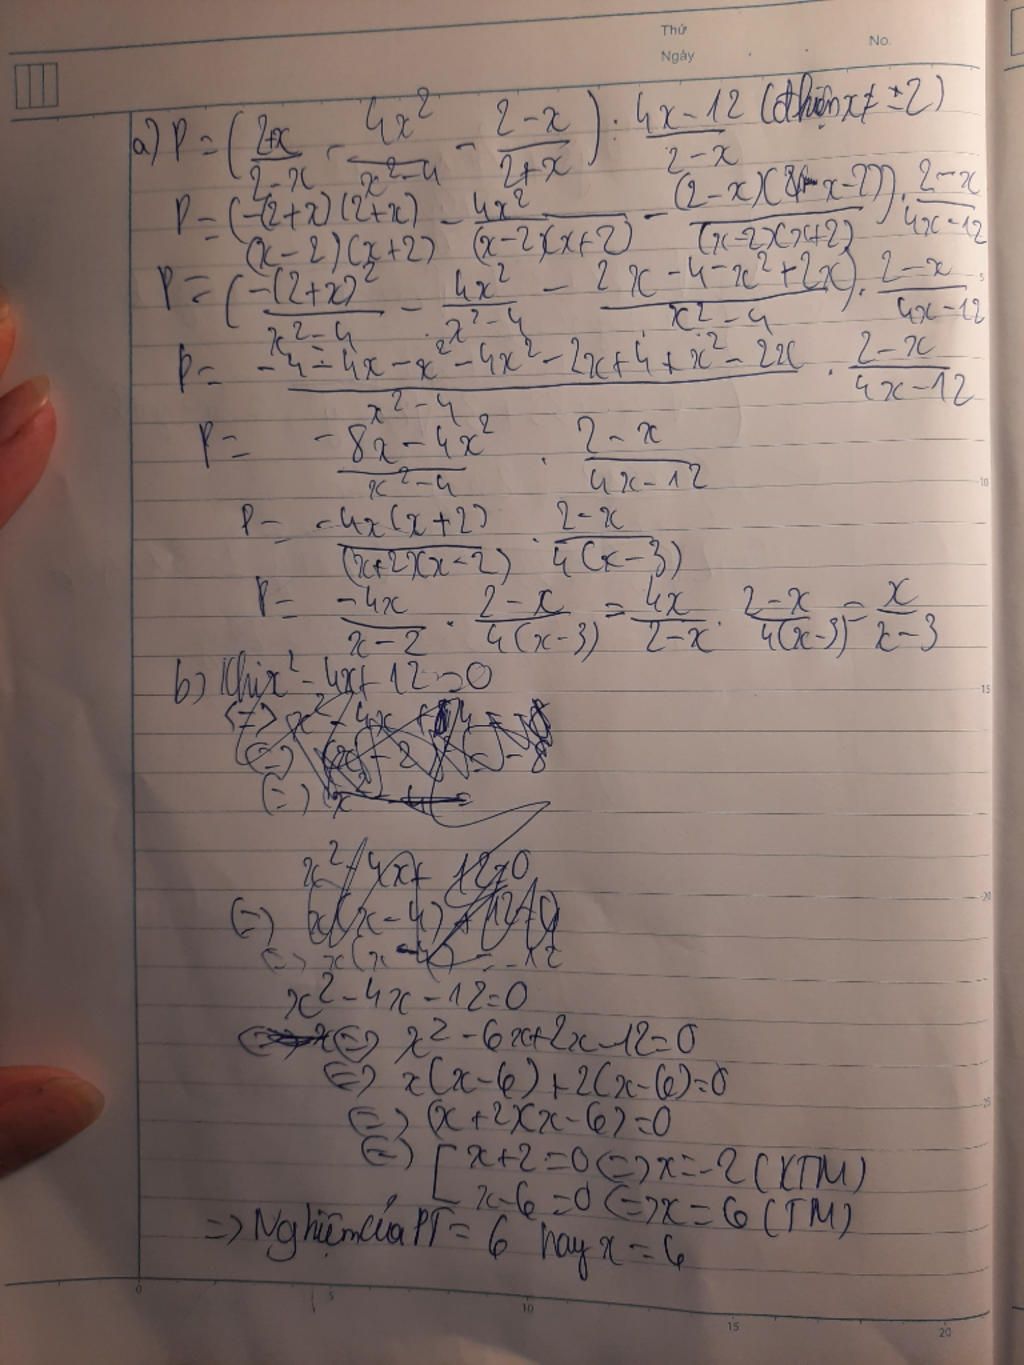 Thứ
Ngày . . No.
a) P = (2+x/2-x - 4x²/x²-4 - 2-x/2+x) : 4x-12/2-x (đkiện x ≠ ±2)
P = (-(2+x)(2+x)/(x-2)(x+2) - 4x²/(x-2)(x+2) - (2-x)(x-2)/(x-2)(x+2)) . 2-x/4x-12
P = (-(2+x)²/x²-4 - 4x²/x²-4 - 2x-4-x²+2x/x²-4) . 2-x/4x-12
P = -4-4x-x²-4x²-2x+4+x²-2x/x²-4 . 2-x/4x-12
P = -8x-4x²/x²-4 . 2-x/4x-12
P = -4x(x+2)/(x+2)(x-2) . 2-x/4(x-3)
P = -4x/x-2 . 2-x/4(x-3) = 4x/2-x . 2-x/4(x-3) = x/x-3
b) Khi x²-4x+12=0
x²-4x+12=0
(=) x(x-4)+12=0
(=) x(x-4) = -12
x²-4x-12=0
(=) x²-6x+2x-12=0
(=) x(x-6)+2(x-6)=0
(=) (x+2)(x-6)=0
(=) [x+2=0 (=) x=-2 (KTM)
x-6=0 (=) x=6 (TM)
=> Nghiệm của PT = 6 hay x = 6
0 5 10 15 20
10
15
20
25